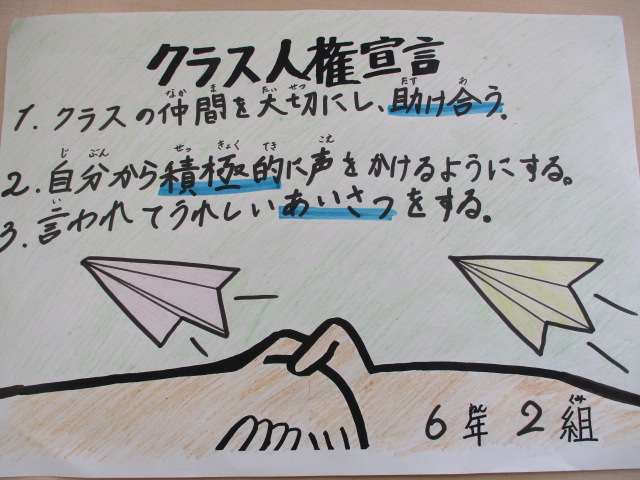 クラス人権宣言
1. クラスの仲間を大切にし、助け合う。
2. 自分から積極的に声をかけるようにする。
3. 言われてうれしいあいさつをする。
6年2組